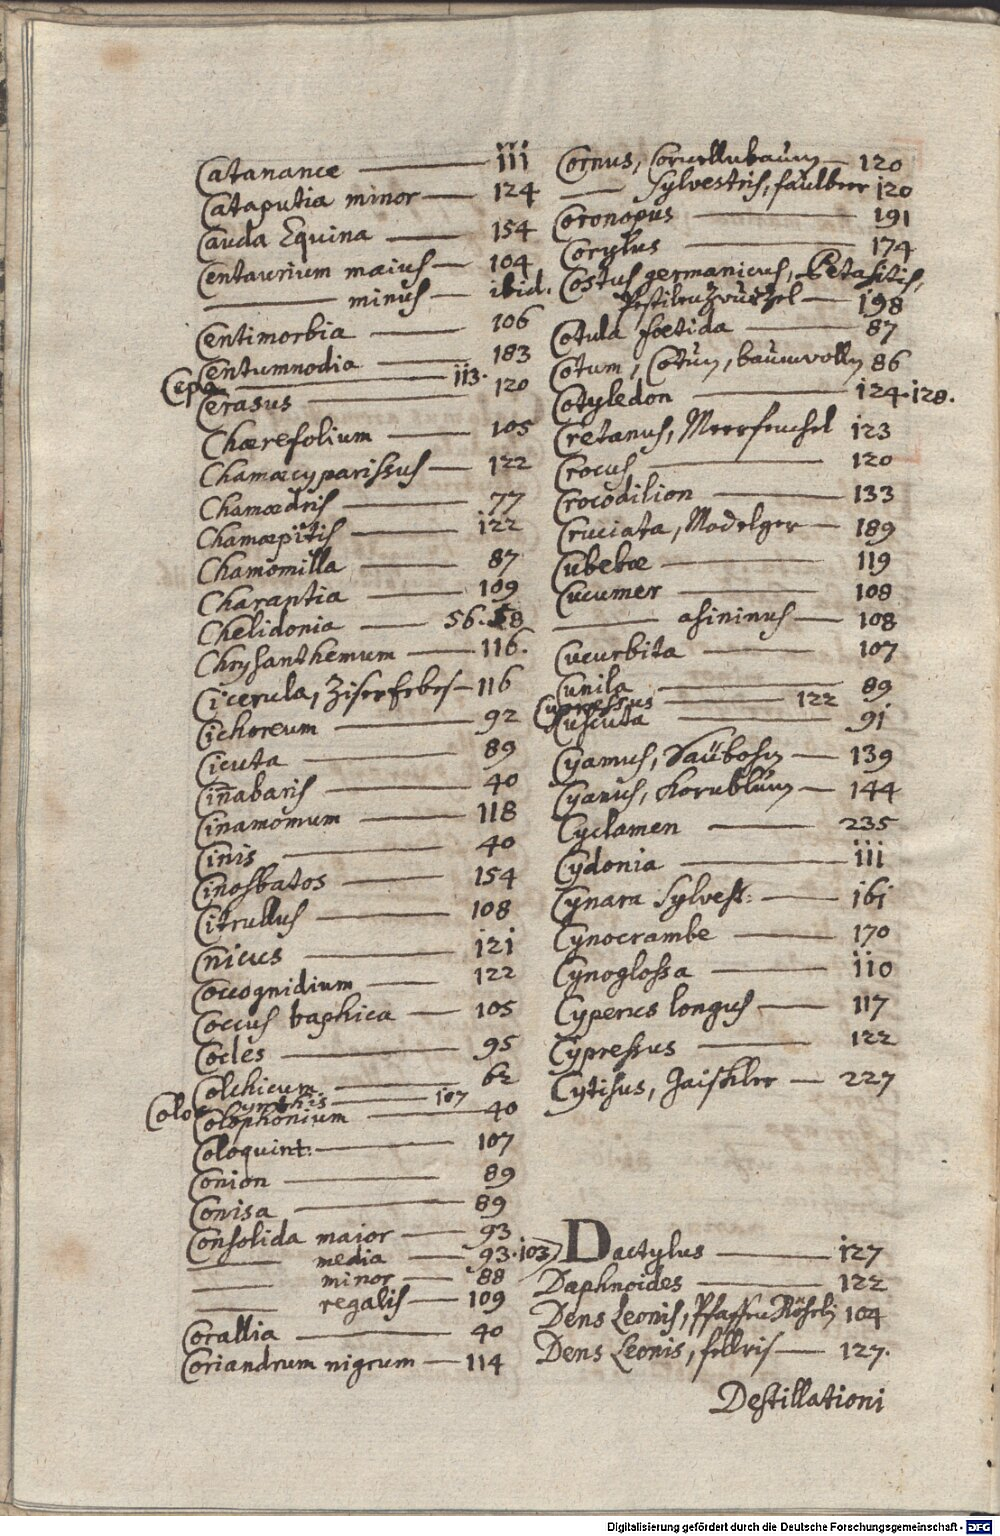 Catanance — iii
Cataputia minor — 124
Cauda Equina — 154
Centaurium maius — 104
— minus — ibid.
Centimorbia — 106
Centumnodia — 183
Cepa — 113.
Cerasus — 120
Chærefolium — 105
Chamæcyparissus — 122
Chamædris — 77
Chamæpitis — 122
Chamomilla — 87
Charantia — 109
Chelidonia — 56. 58
Chrysanthemum — 116.
Cicerula, Ziserebes — 116
Cichoreum — 92
Cicuta — 89
Cin̄abaris — 40
Cinamomum — 118
Cinis — 40
Cinosbatos — 154
Citrullus — 108
Cnicus — 121
Coccognidium — 122
Coccus baphica — 105
Cocles — 95
Colchicum — 62
Colocynthis — 107
Colophonium — 40
Coloquint: — 107
Conion — 89
Conisa — 89
Consolida maior — 93
— media — 93. 103
— minor — 88
— regalis — 109
Corallia — 40
Coriandrum nigrum — 114
Cornus, Cornellubaum — 120
— sylvestris, faulbeer 120
Coronopus — 191
Corylus — 174
Costus germanicus, Petasitis,
Pestilenzwurzel — 198
Cotula foetida — 87
Cotum, Cotun, baumwolln 86
Cotyledon — 124. 128.
Cretanus, Meerfenchel 123
Crocus — 120
Crocodilion — 133
Cruciata, Modelger — 189
Cubebæ — 119
Cucumer — 108
— asininus — 108
Cucurbita — 107
Cunila — 89
Cupressus — 122
Cuscuta — 91
Cyamus, Saubohn — 139
Cyanus, Kornblum — 144
Cyclamen — 235
Cydonia — iii
Cynara Sylvest: — 161
Cynocrambe — 170
Cynoglossa — 110
Cyperus longus — 117
Cypressus — 122
Cytisus, Gaisklee — 227
Dactylus — 127
Daphnoides — 122
Dens Leonis, Pfaffen Röhrli 104
Dens Leonis, — 127.
Destillationi
Digitalisierung gefördert durch die Deutsche Forschungsgemeinschaft - DFG